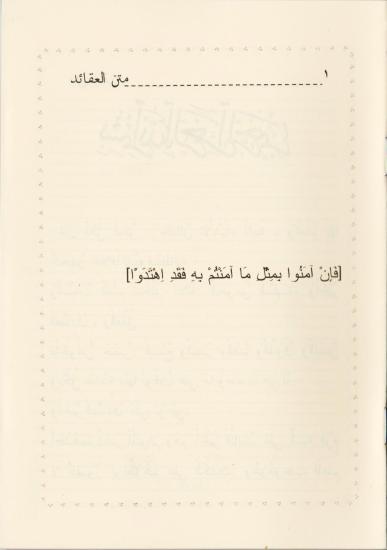 ١ ........................ متن العقائد
[فَإِنْ آمَنُوا بِمِثْلِ مَا آمَنْتُمْ بِهِ فَقَدِ اهْتَدَوْا]